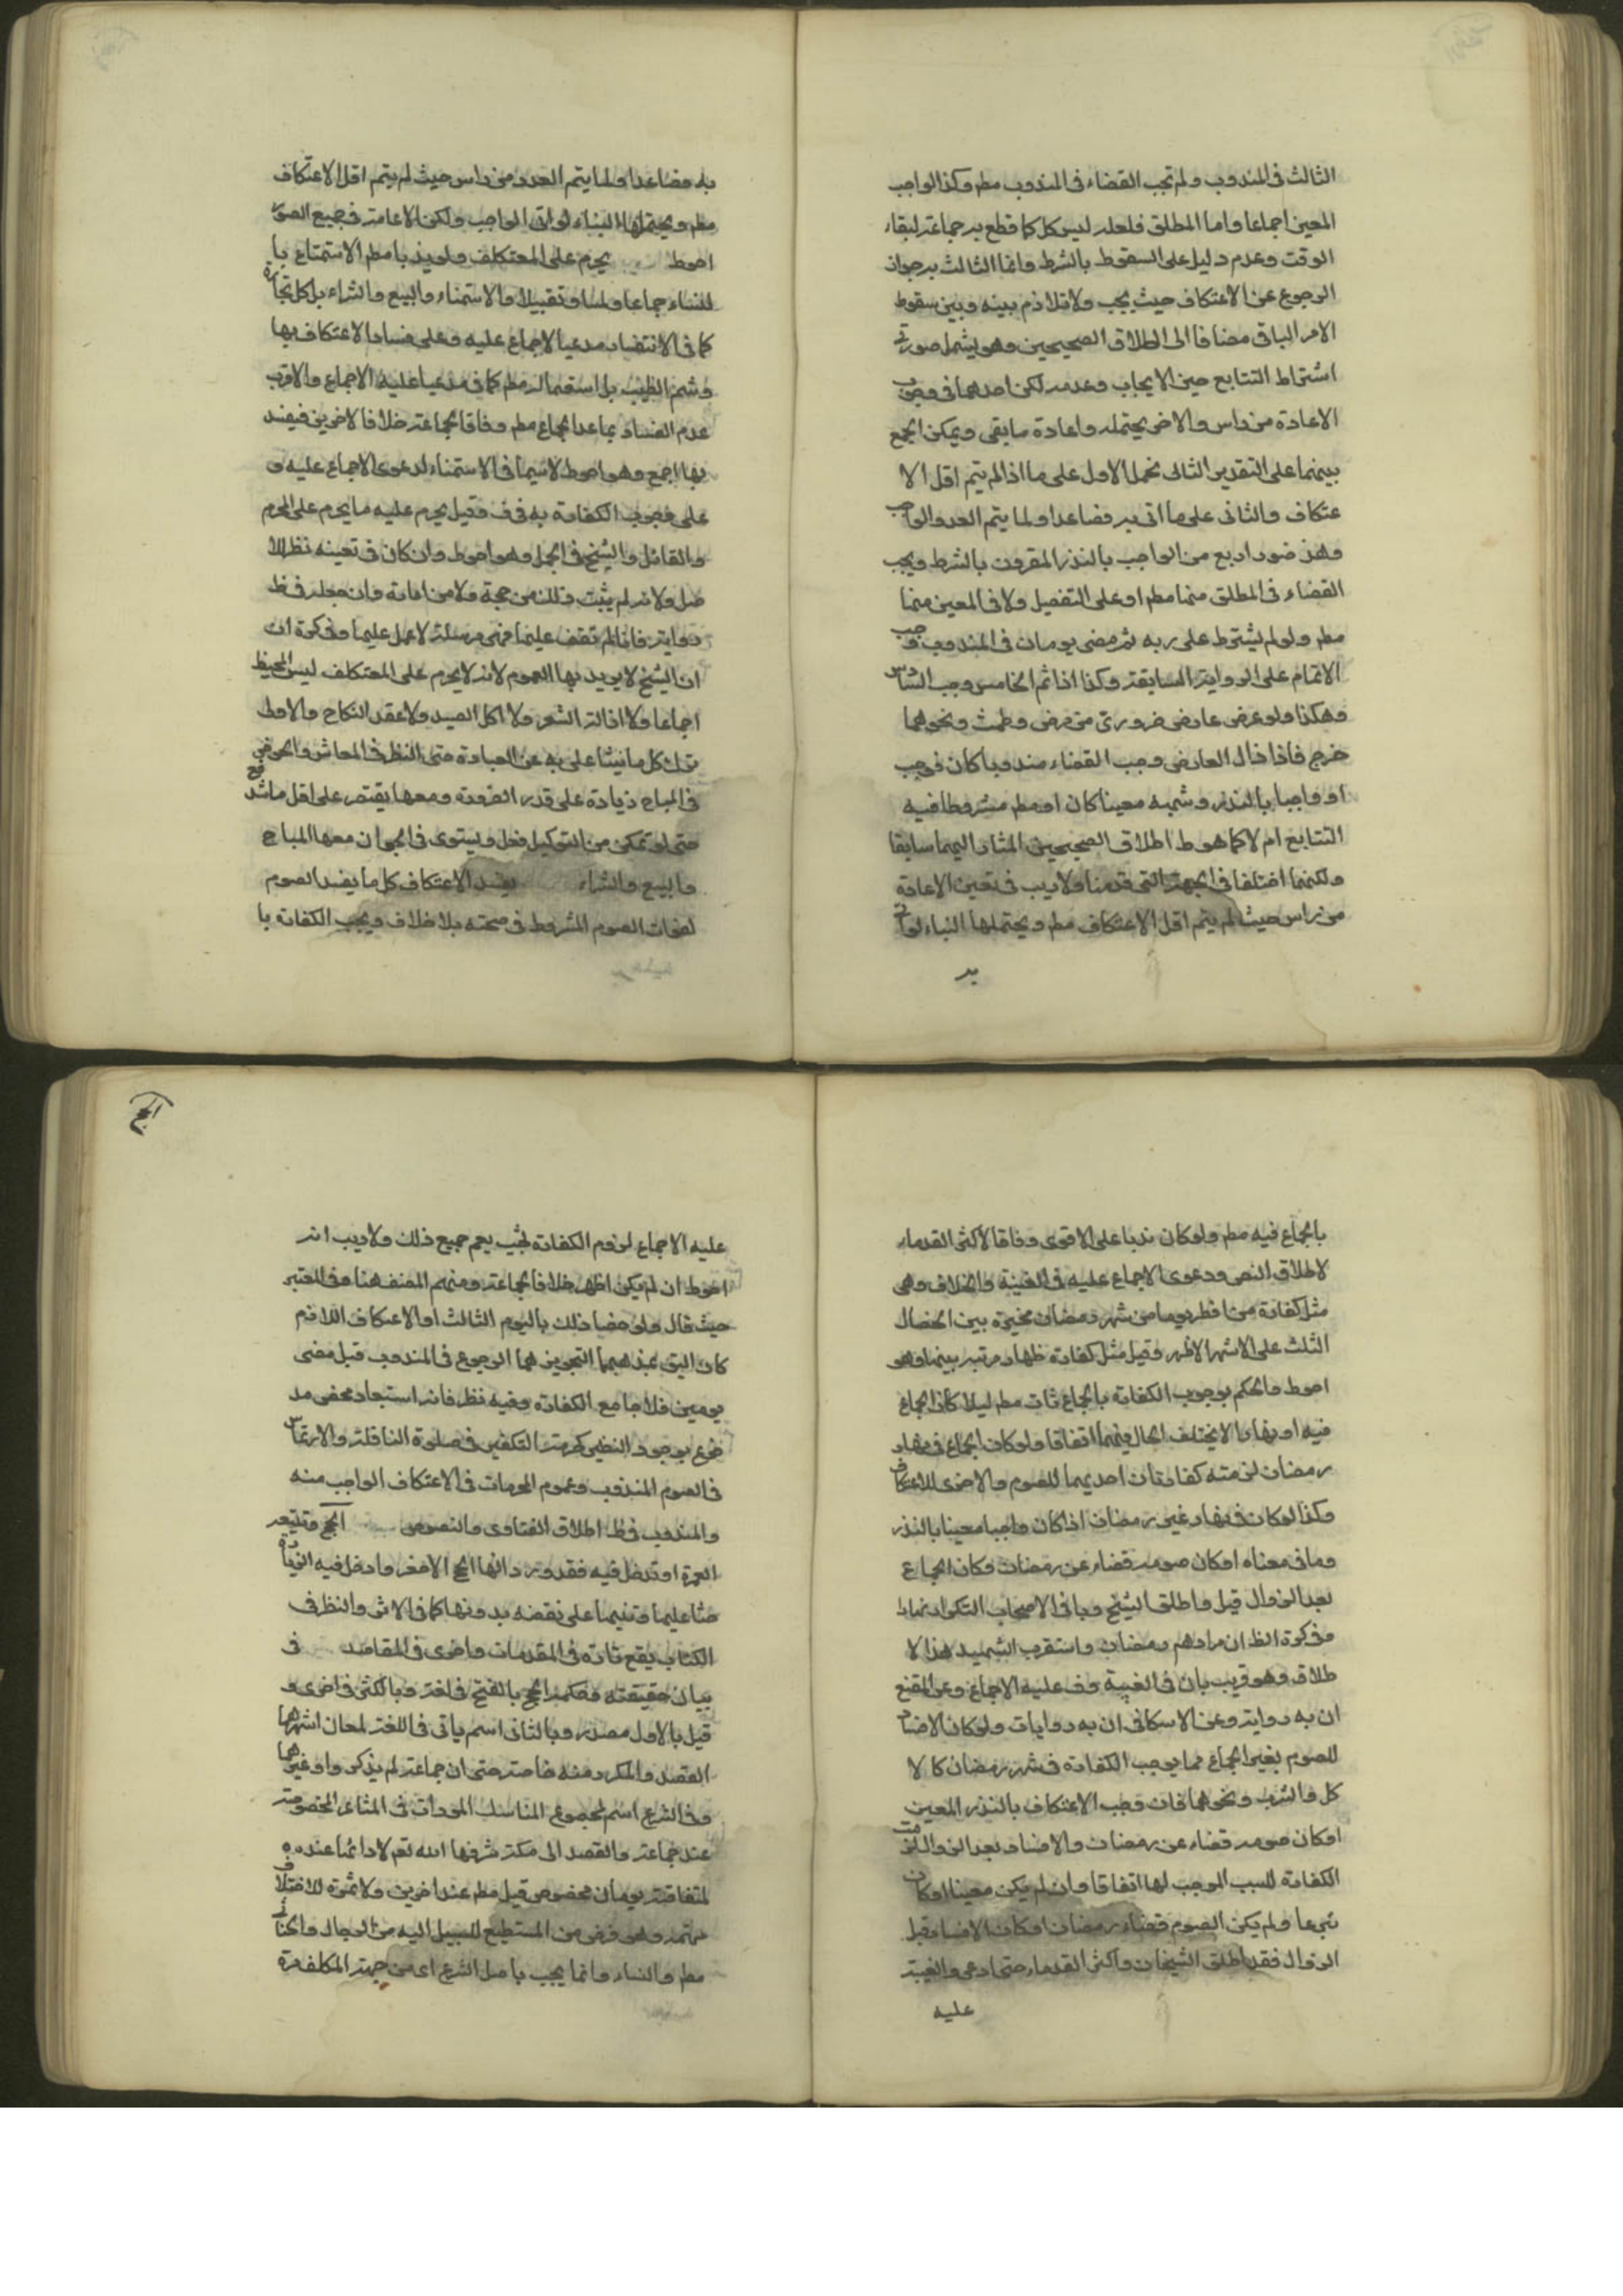 الثالث فى المندوب ولم تجب القضاء فى المندوب مطم وكذا الواجب
المعين اجماعا واما المطلق فلعله ليس كل كما قطع به جماعة لبقاء
الوقت وعدم دليل على السقوط بالشرط وانما الثالث به جواز
الرجوع عن الاعتكاف حيث يجب ولا تلازم بينه وبين سقوط
الامر الباقى مضافا الى اطلاق الصحيحين وهو يشمل صورتى
اشتراط التتابع حين الايجاب وعدمه لكن احدهما فى وجوب
الاعادة من راس والاخر يحتمله واعادة ما بقى ويمكن الجمع
بينهما على التقدير الثانى بحمل الاول على ما اذا لم يتم اقل الا
عتكاف والثانى على ما اتى به فصاعدا ولما يتم العدد الواجب
وهذه صور اربع من الواجب بالنذر المقرون بالشرط ويجب
القضاء فى المطلق منها مطم او على التفصيل ولا فى المعين منها
مطم ولو لم يشترط على ربه ثم مضى يومان فى المندوب وجب
الاتمام على الرواية السابقة وكذا اذا تم الخامس وجب السادس
وهكذا ولو عرض عارض ضرورى من مرض وطمث ونحوهما
خرج فاذا زال العارض وجب القضاء مندوبا كان فوجب
او واجبا بالنذر وشبهه معينا كان او مطم مشروطا فيه
التتابع ام لا كما هو ط اطلاق الصحيحين المشار اليهما سابقا
ولكنهما اختلفا فى الجهة التى قدمنا ولا ريب فى تعين الاعادة
من راس حيث لم يتم اقل الاعتكاف مطم ويحتملها البناء لو اتى
به
به فصاعدا ولما يتم العدد من راس حيث لم يتم اقل الاعتكاف
مطم ويحتملها البناء لو اتى الواجب ولكن الاعادة فى جميع الصور
احوط يحرم على المعتكف ولو ندبا مطم الاستمتاع با
لنساء جماعا ولمسا وتقبيلا والاستمناء والبيع والشراء بل كل تجارة
كما فى الانتصار مدعيا الاجماع عليه وعلى فساد الاعتكاف بها
وشم الطيب بل استعماله مطم كما فى مدعيا عليه الاجماع والاقرب
عدم الفساد بما عدا الجماع مطم وفاقا لجماعة خلافا لاخرين فيفسد
بها اجمع وهو احوط لاسيما فى الاستمناء لدعوى الاجماع عليه و
على وجوب الكفارة به فى ف وقيل يحرم عليه ما يحرم على المحرم
والقائل والشيخ فى الجمل وهو احوط وان كان فى تعينه نظر للا
صل ولانه لم يثبت ذلك من حجة ولا من امارة وان جعله فى ط
رواية فانا لم نقف عليها فهى مرسلة لا عمل عليها وفى كرة ان
ان الشيخ لا يريد بها العموم لانه لا يحرم على المعتكف لبس المخيط
اجماعا ولا ازالة الشعر ولا اكل الصيد ولا عقد النكاح والاولى
ترك كل ما نيشاعلى به عن العبادة حتى النظر فى المعاش والخوض
فى المباح زيادة على قدر الضرورة ومعها يقتصر على اقل ما تندفع
حتى لو تمكن من التوكيل فعل ويستوى فى الجواز معها المباح
والبيع والشراء يفسد الاعتكاف كل ما يفسد الصوم
لفوات الصوم المشروط فى صحته بلا خلاف ويجب الكفارة با
بالجماع فيه مطم ولو كان ندبا على الاقوى وفاقا لاكثر القدماء
لاطلاق النص ودعوى الاجماع عليه فى الغنية والخلاف وهى
مثل كفارة من افطر يوما من شهر رمضان مخيرة بين الخصال
الثلث على الاشهر الاظهر وقيل مثل كفارة ظهار مرتبة بينها وهو
احوط والحكم بوجوب الكفارة بالجماع ثابت مطم ليلا كان الجماع
فيه او نهارا لا يختلف الحال فيهما اتفاقا ولو كان الجماع فى نهار
رمضان لزمته كفارتان احديهما للصوم والاخرى للاعتكاف
وكذا لو كان فى نهار غير رمضان اذا كان واجبا معينا بالنذر
وما فى معناه او كان صومه قضاء عن رمضان وكان الجماع
بعد الزوال قيل واطلق الشيخ وباقى الاصحاب التكرار نهارا
وفى كرة الظ ان مرادهم رمضان واستقرب الشهيد هذا لا
طلاق وهو قريب بان فى الغنية وف عليه الاجماع وعن المقنع
ان به رواية وعن الاسكافى ان به روايات ولو كان الافساد
للصوم بغير الجماع مما يوجب الكفارة فى شهر رمضان كالا
كل والشرب ونحوهما فان وجب الاعتكاف بالنذر المعين
او كان صومه قضاء عن رمضان والافساد بعد الزوال لزمت
الكفارة للسبب الموجب لها اتفاقا وان لم يكن معينا او كان
تبرعا ولم يكن الصوم قضاء رمضان او كان الافساد قبل
الزوال فقد اطلق الشيخان واكثر القدماء حتى ادعى والغنية
عليه
عليه الاجماع لزوم الكفارة بحيث يعم جميع ذلك ولا ريب انه
احوط ان لم يكن اظهر خلافا لجماعة ومنهم المصنف هنا وفى المعتبر
حيث قال ولو خصا ذلك باليوم الثالث او الاعتكاف اللازم
كان اليق بمذهبهما لتجويزهما الرجوع فى المندوب قبل مضى
يومين فلا جامع الكفارة وفيه نظر فانه استبعاد محض مد
فوع بوجود النظير كحرمة التكفير فى صلوة النافلة والارتماس
فى الصوم المندوب وعموم المحرمات فى الاعتكاف الواجب منه
والمندوب فى ط اطلاق الفتاوى والنصوص الحج وتتبعه
العمرة او تدخل فيه فقد ورد انها الحج الاصغر وادخل فيه الزيارة
حثا عليها وتنبيها على نقصه بدونها كما فى الاثر والنظر فى
الكتاب يقع تارة فى المقدمات واخرى فى المقاصد فى
بيان حقيقته وحكمه الحج بالفتح فى لغة وبالكسر فى اخرى و
قيل بالاول مصدر وبالثانى اسم ياتى فى اللغة لمعان اشهرها
القصد والمكرر منه خاصة حتى ان جماعة لم يذكروا غيرهما
وفى الشرع اسم لمجموع المناسك المؤدات فى المشاعر المخصوصة
عند جماعة والقصد الى مكة شرفها الله تعم لادائها عنده
لمتعلقة بزمان مخصوص قيل مطم عند اخرين ولا ثمرة للاختلاف
مهمة وهو فرض من المستطيع للسبيل اليه من الرجال والخناثى
مطم والنساء وانما يجب باصل الشرع اى من جهة المكلف مرة
الحج